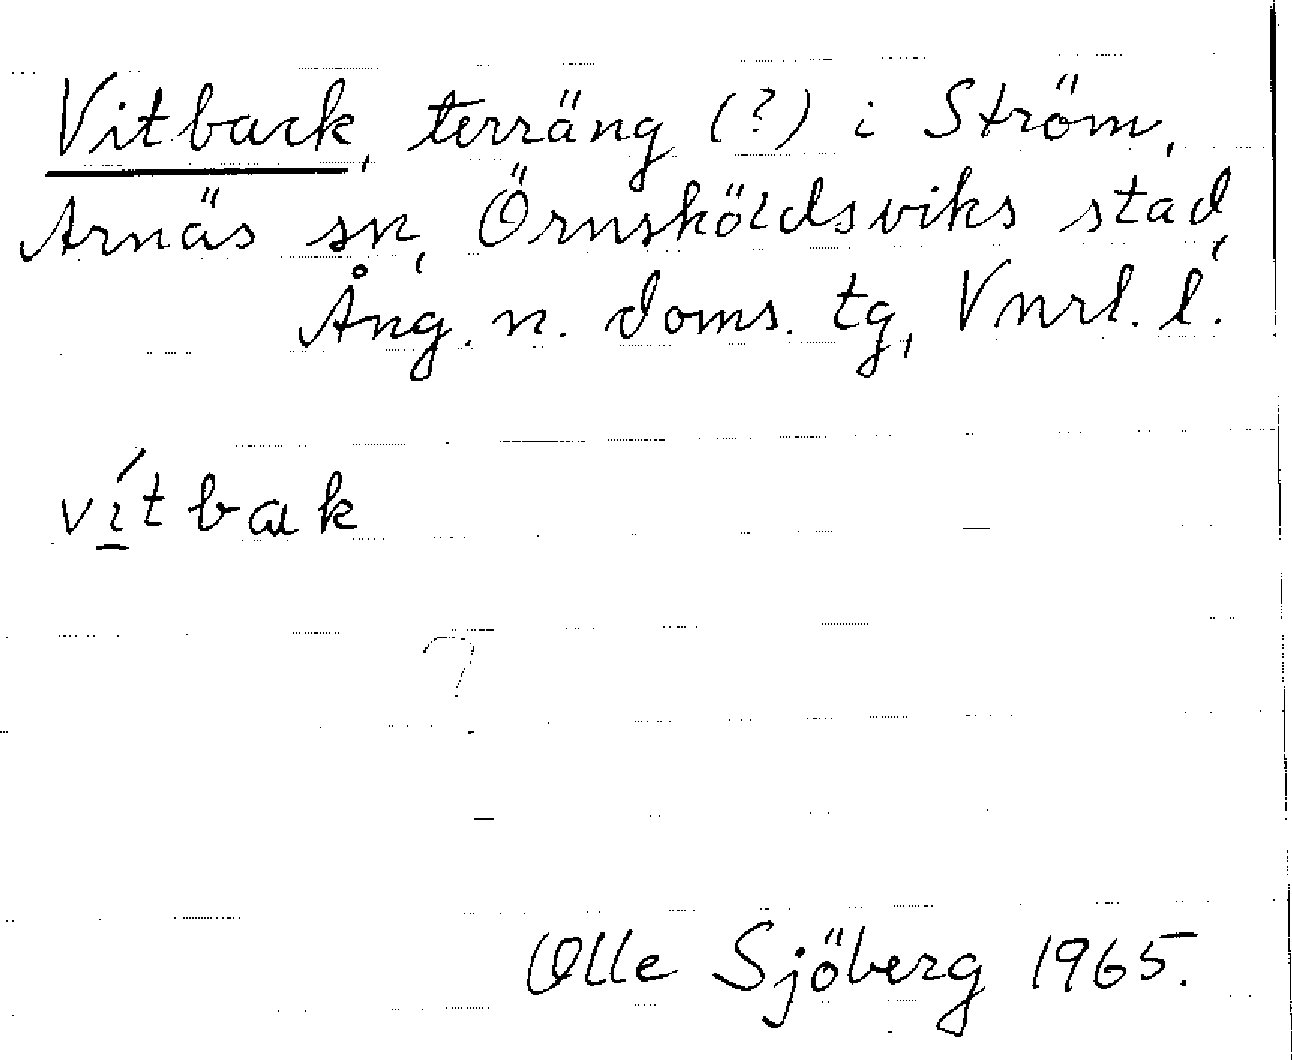 Vitback, terräng (?) i Ström,
Arnäs sn, Örnsköldsviks stad,
Ång. n. doms. tg, Vnrl. l.
vítbak
?
Olle Sjöberg 1965.